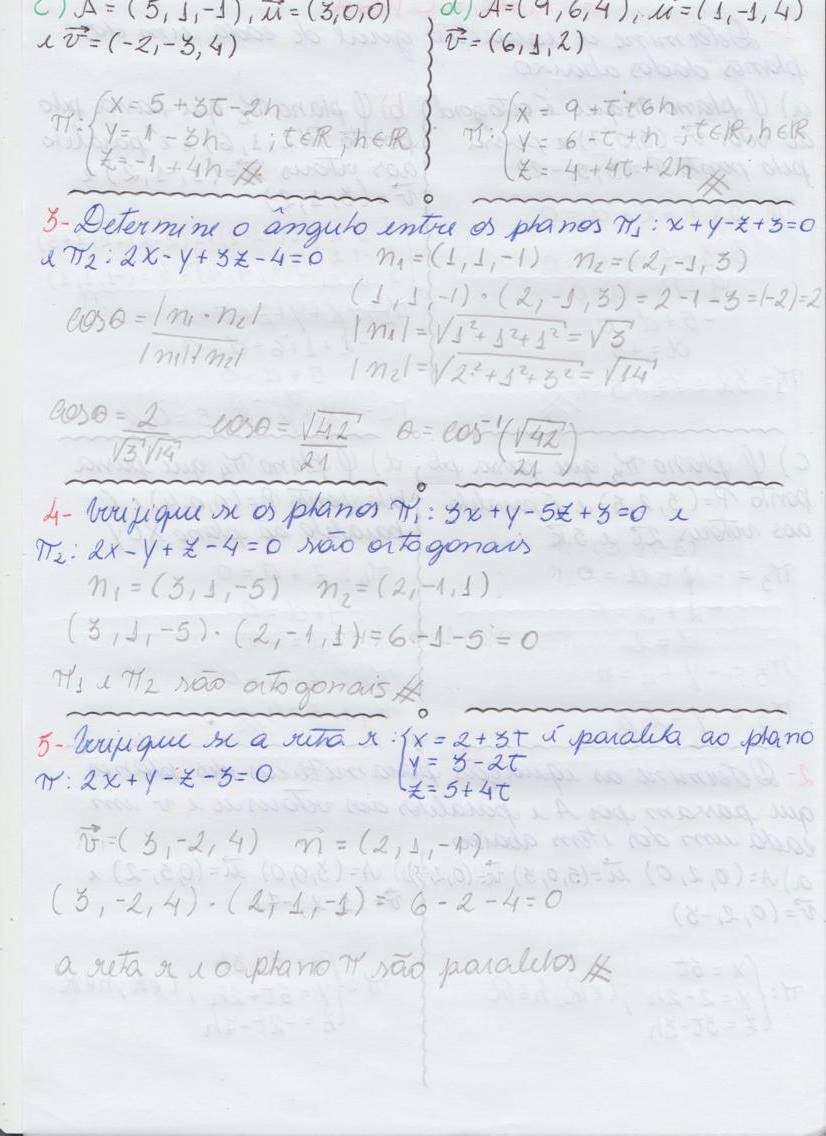 c) A = (5, 1, -1), u⃗ = (3, 0, 0)
e v⃗ = (-2, -3, 4)
π: { x = 5 + 3t - 2h
y = 1 - 3h ; t∈ℝ, h∈ℝ
z = -1 + 4h //
d) A = (9, 6, 4), u⃗ = (1, -1, 4)
v⃗ = (6, 1, 2)
π: { x = 9 + t + 6h
y = 6 - t + h ; t∈ℝ, h∈ℝ
z = 4 + 4t + 2h //
3- Determine o ângulo entre os planos π1: x + y - z + 3 = 0
e π2: 2x - y + 3z - 4 = 0 n1 = (1, 1, -1) n2 = (2, -1, 3)
(1, 1, -1) · (2, -1, 3) = 2 - 1 - 3 = |-2| = 2
cosθ = |n1 · n2| / |n1| |n2|
|n1| = √1² + 1² + 1² = √3
|n2| = √2² + 1² + 3² = √14
cosθ = 2 / √3 √14 cosθ = √42 / 21 θ = cos⁻¹(√42 / 21)
4- Verifique se os planos π1: 3x + y - 5z + 3 = 0 e
π2: 2x - y + z - 4 = 0 são ortogonais
n1 = (3, 1, -5) n2 = (2, -1, 1)
(3, 1, -5) · (2, -1, 1) = 6 - 1 - 5 = 0
π1 e π2 são ortogonais //
5- Verifique se a reta r: { x = 2 + 3t é paralela ao plano
y = 3 - 2t
z = 5 + 4t
π: 2x + y - z - 3 = 0
v⃗ = (3, -2, 4) n = (2, 1, -1)
(3, -2, 4) · (2, 1, -1) = 6 - 2 - 4 = 0
a reta r e o plano π são paralelos //